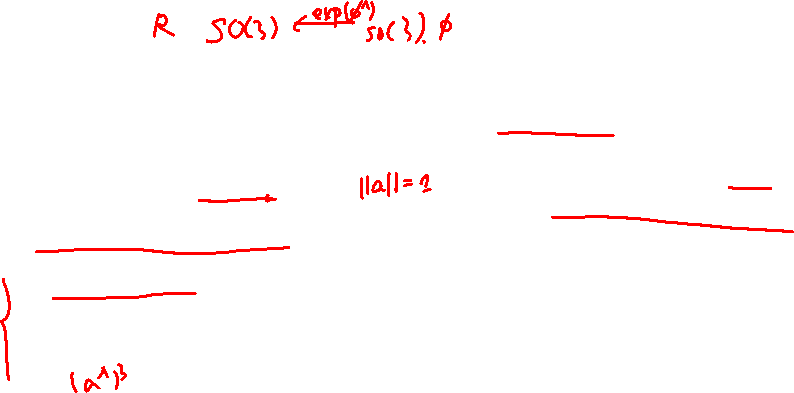 R SO(3) exp(φ^) so(3). φ
||a||=1
(a^)³